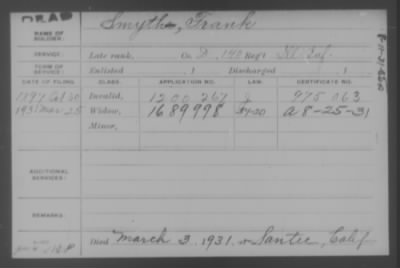 DEAD
NAME OF SOLDIER: Smythe, Frank
SERVICE: Late rank, Co. D, 140 Reg't Ill. Inf.
TERM OF SERVICE: Enlisted , 1 Discharged , 1
DATE OF FILING. CLASS. APPLICATION NO. LAW. CERTIFICATE NO.
1897 Oct 20 Invalid, 1200267 2 975063
1931 Mar 25 Widow, 1689998 A 8-25-31
Minor,
ADDITIONAL SERVICES:
REMARKS:
Died March 3, 1931, at Santee, Calif